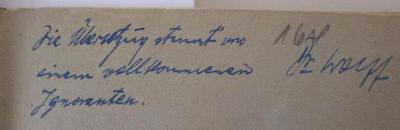 Die Übersetzung stammt von
einem vollkommenen
Ignoranten.
Dr Wolff